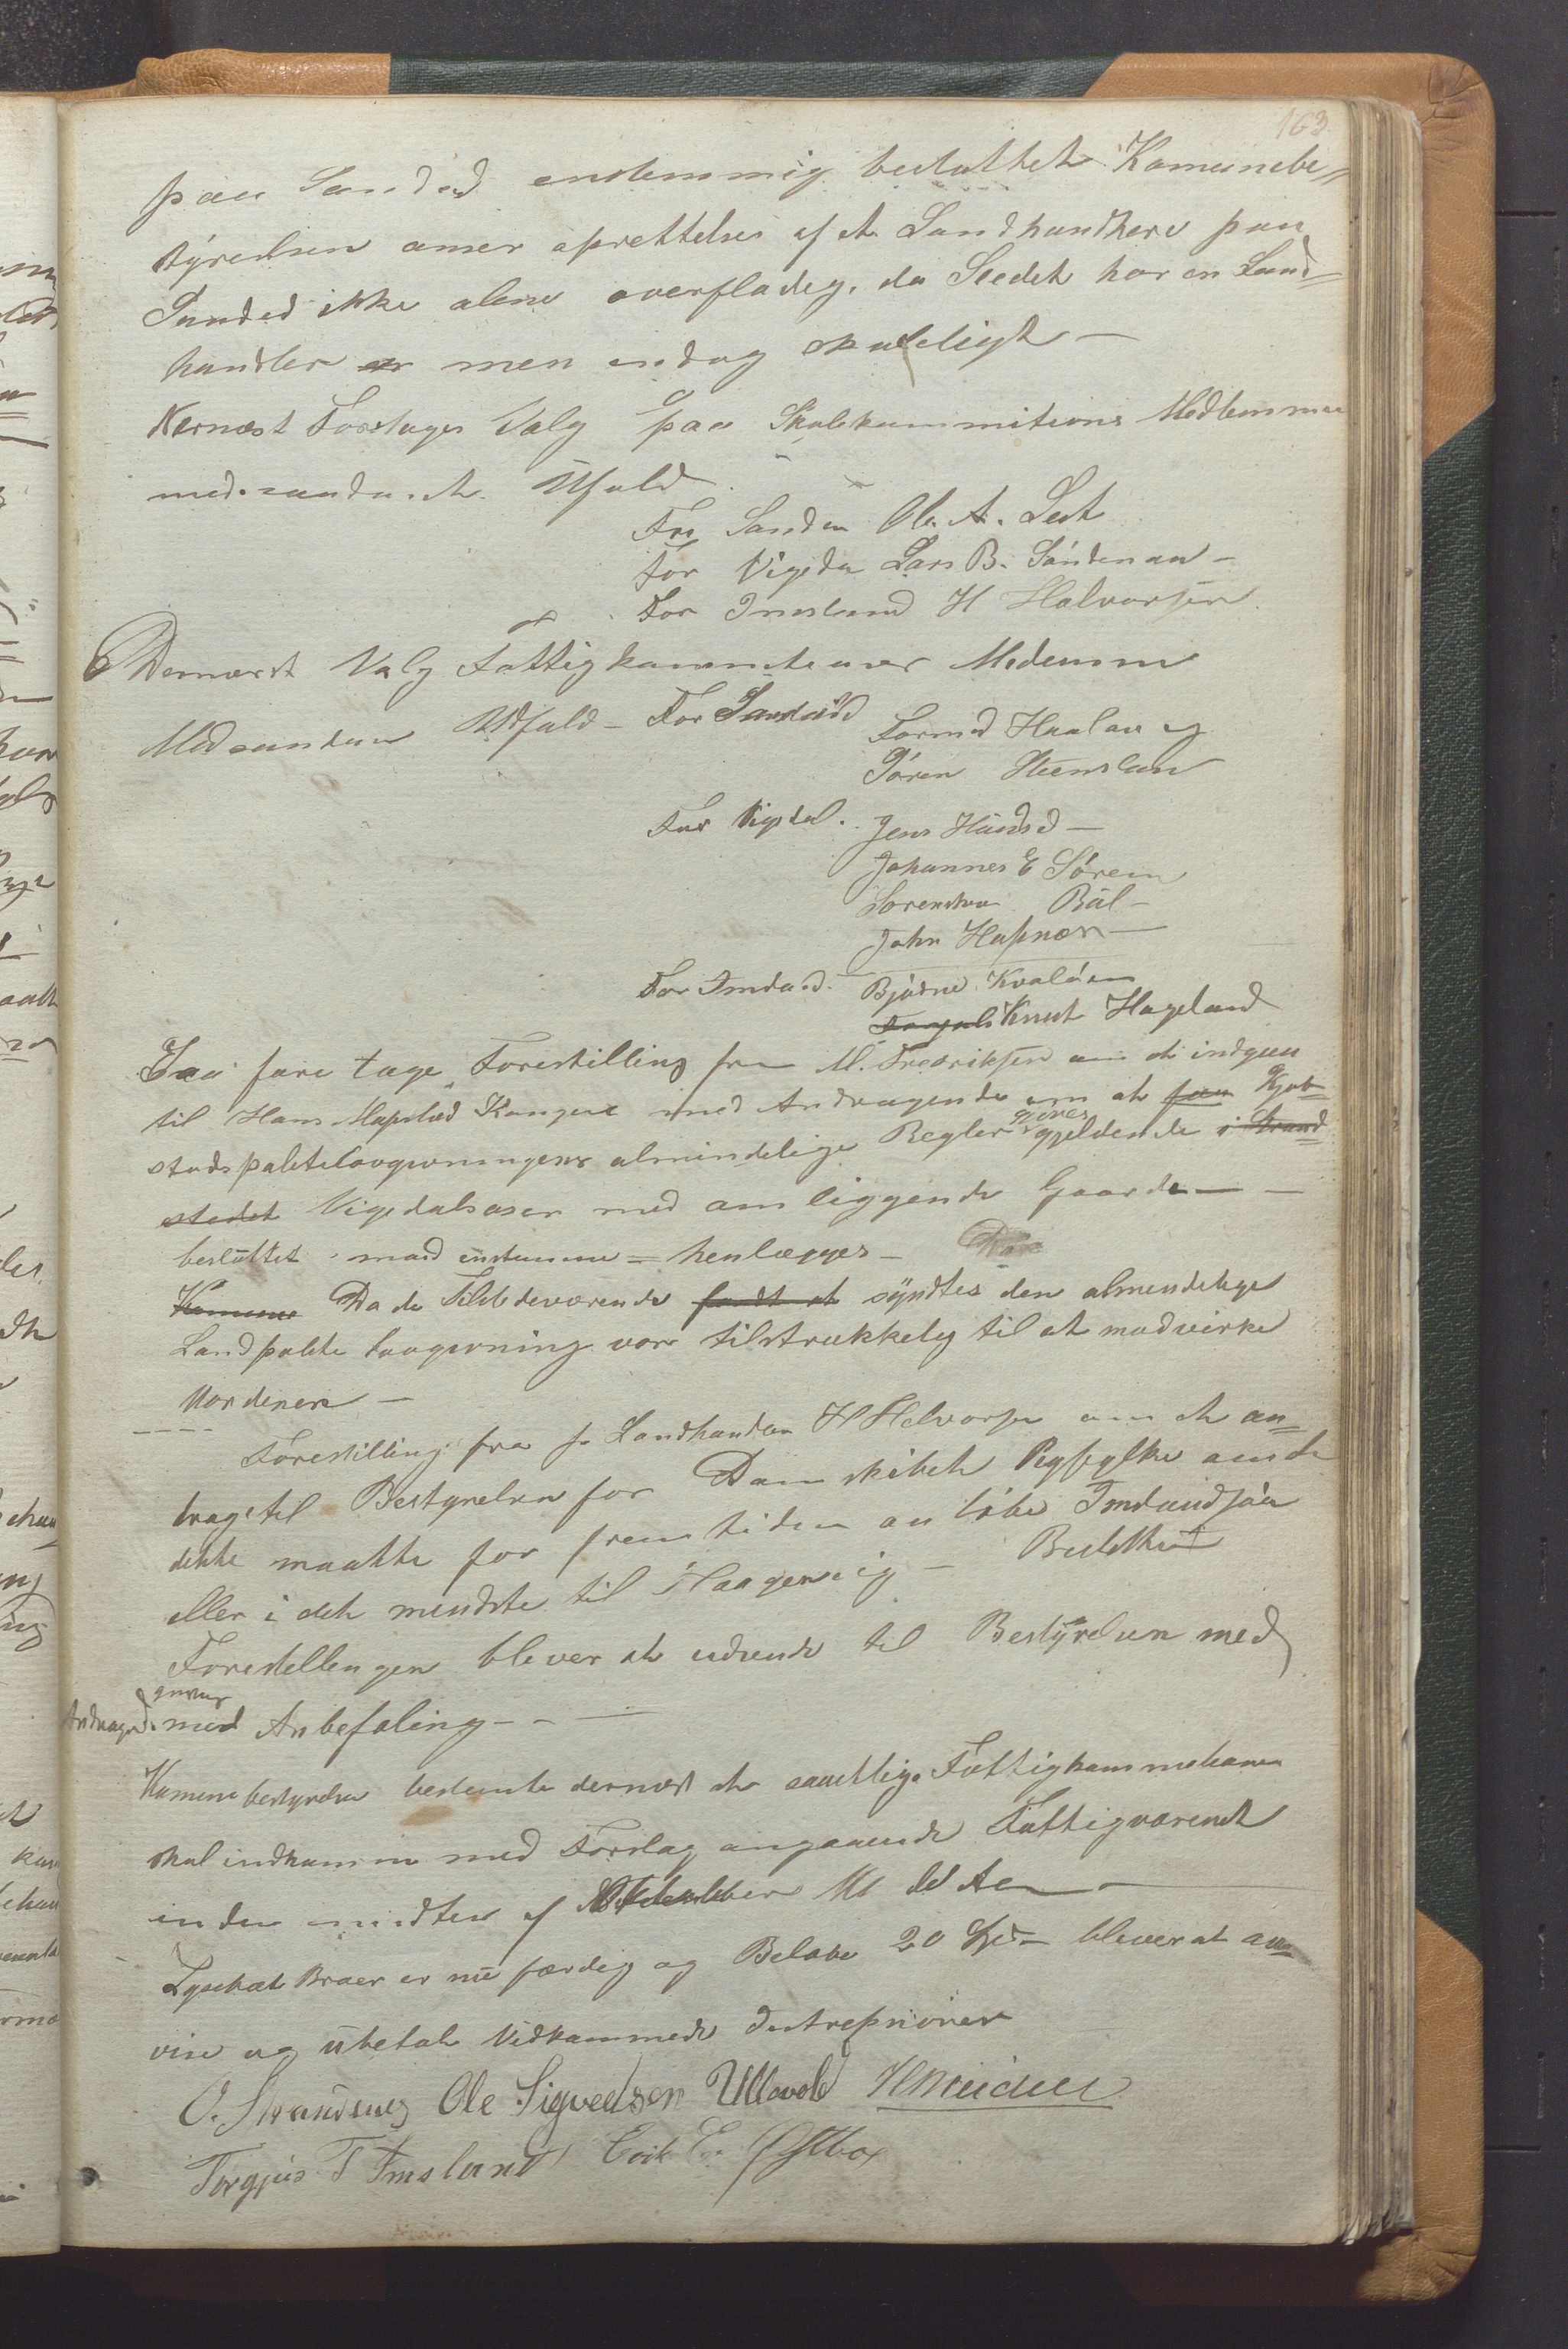 163
paa Sandeid enstemmig besluttet Komunebe=
styrelsen anser oprettelse af et Landhandleri paa
Sandeid ikke alene overflødig, da Stedet har en Land=
handler men endog skadeligt —
Dernæst Foretages Valg paa Skolekommitions Medlemmer
med saadant Udfald
For Sandeid Ole A. Leit
For Vigedal Lars B. Søndenaa —
For Imsland H Halvorsen
Dernæst Valg Fattigkommitioner Medlemmer
Med saadan Udfald — For Sandeid
Tormod Haaland og
Søren Steensland
For Vigedal. Jens Handsd —
Johannes E Sørem
Sørenstva Bal —
John Hapnæs —
For Imsland. Bjødne Kvaløen
Knut Hageland
Saa fore tages Forestilling fra M. Fredriksen om at indgaa
til Hans Majestæd Kongen med Andragende om at faa Kjøb=
stads politilovgivningens almindelige Regler gives gjeldende i Strand=
stedet Vigedalsøsen med omliggende Gaarde —
besluttet mod enstemme = henlægges —
Komune Da de Tilstedeværende fandt at syndtes den almendelige
Landpoliti lovgivning var tilstrækkelig til at modvirke
Uordenen —
Forestilling fra f. Landhandler H Helvorsen om at an=
drage til Bestyrelsen for Damskibet Rygfylke om at
dette maatte for fremtiden an løbe Imslandsjøen
eller i det mindste til Haagenvig — Besluttet
Forestellingen blever at udsende til Bestyrelsen med
Andragende med Anbefaling — —
Komunebestyrelsen bestemte dernæst at samtlige Fattigkommitioner
skal indkomme med Forslag angaaende Fattigvæsenet
inden midten af Oktember M d A
Lysekat Broer er nu færdig og Beløbe 20 Kr — blever at an=
vise og ubetale Vedkommede Entreprenører
O. Svendsen Ole Sigvedsen Ullevold
Torgjus T Imsland Erik E. Østbø